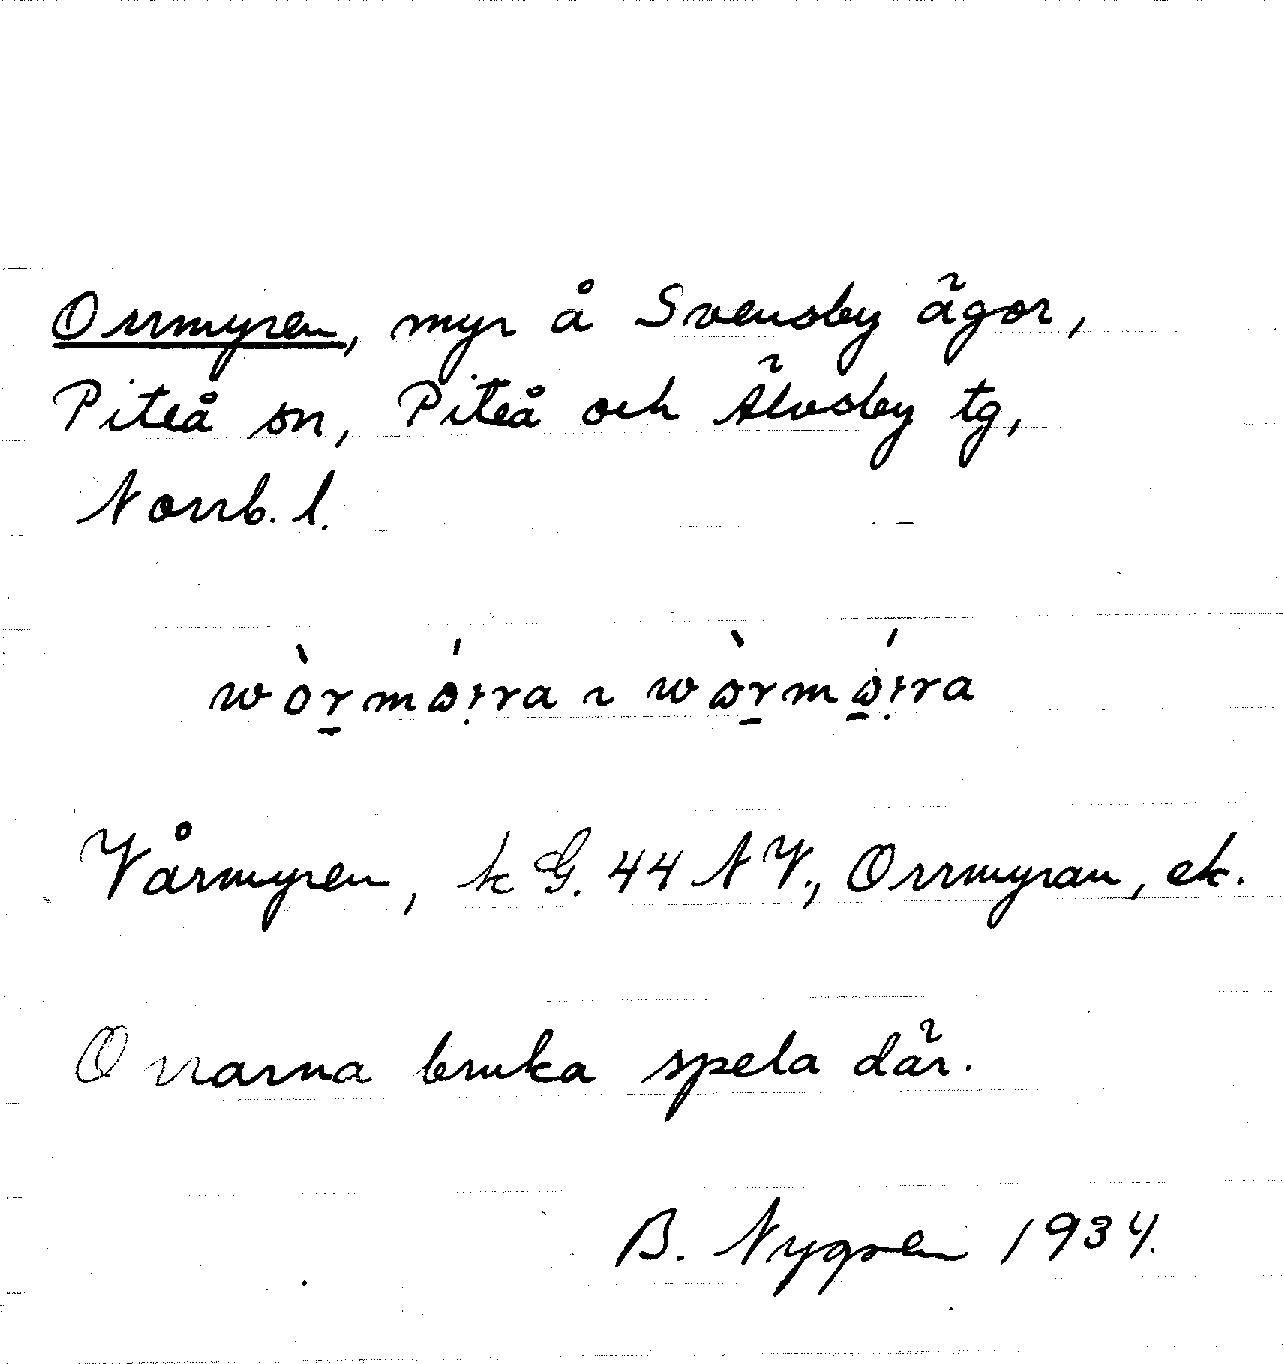 Orrmyren, myr å Svensby ägor,
Piteå sn, Piteå och Älvsby tg,
Norrb. l.
Vårmyren, k G. 44 NV., Orrmyran, ek.
Orrarna bruka spela där.
B. Nygren 1934.